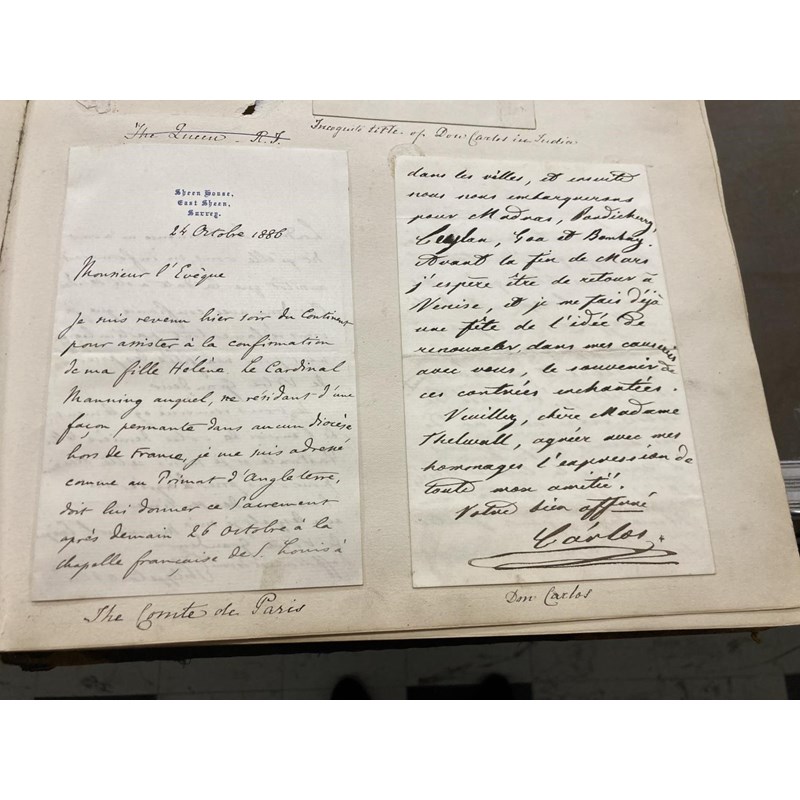 The Queen - R. I.
Incognito title of Don Carlos in India
Sheen House,
East Sheen,
Surrey.
24 Octobre 1886
Monsieur l'Evèque
Je suis revenu hier soir du Continent
pour assister à la confirmation
de ma fille Hélène. Le Cardinal
Manning auquel, ne résidant d'une
façon permante dans aucun diocèse
hors de France, je me suis adressé
comme au Primat d'Angleterre,
doit lui donner ce Sacrement
après demain 26 octobre à la
chapelle française de S. Louis à
The Comte de Paris
dans les villes, et ensuite
nous nous embarquerons
pour Madras, Pondichery,
Ceylan, Goa et Bombay.
Avant la fin de Mars
j'espère être de retour à
Venise, et je me fais déjà
une fête de l'idée de
renouveler, dans mes causeries
avec vous, le souvenir de
ces contrées enchantées.
Veuillez, chère Madame
Thelwall, agréer avec mes
hommages l'expression de
toute mon amitié.
Votre bien affmé
Cárlos
Don Carlos